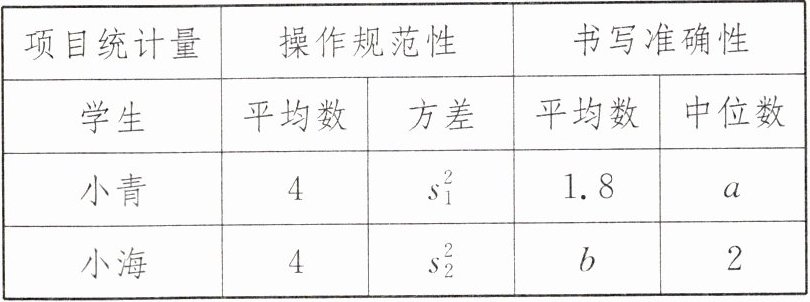 项目统计量 操作规范性 书写准确性
学生 平均数 方差 平均数 中位数
小青 4 s₁² 1.8 a
小海 4 s₂² b 2